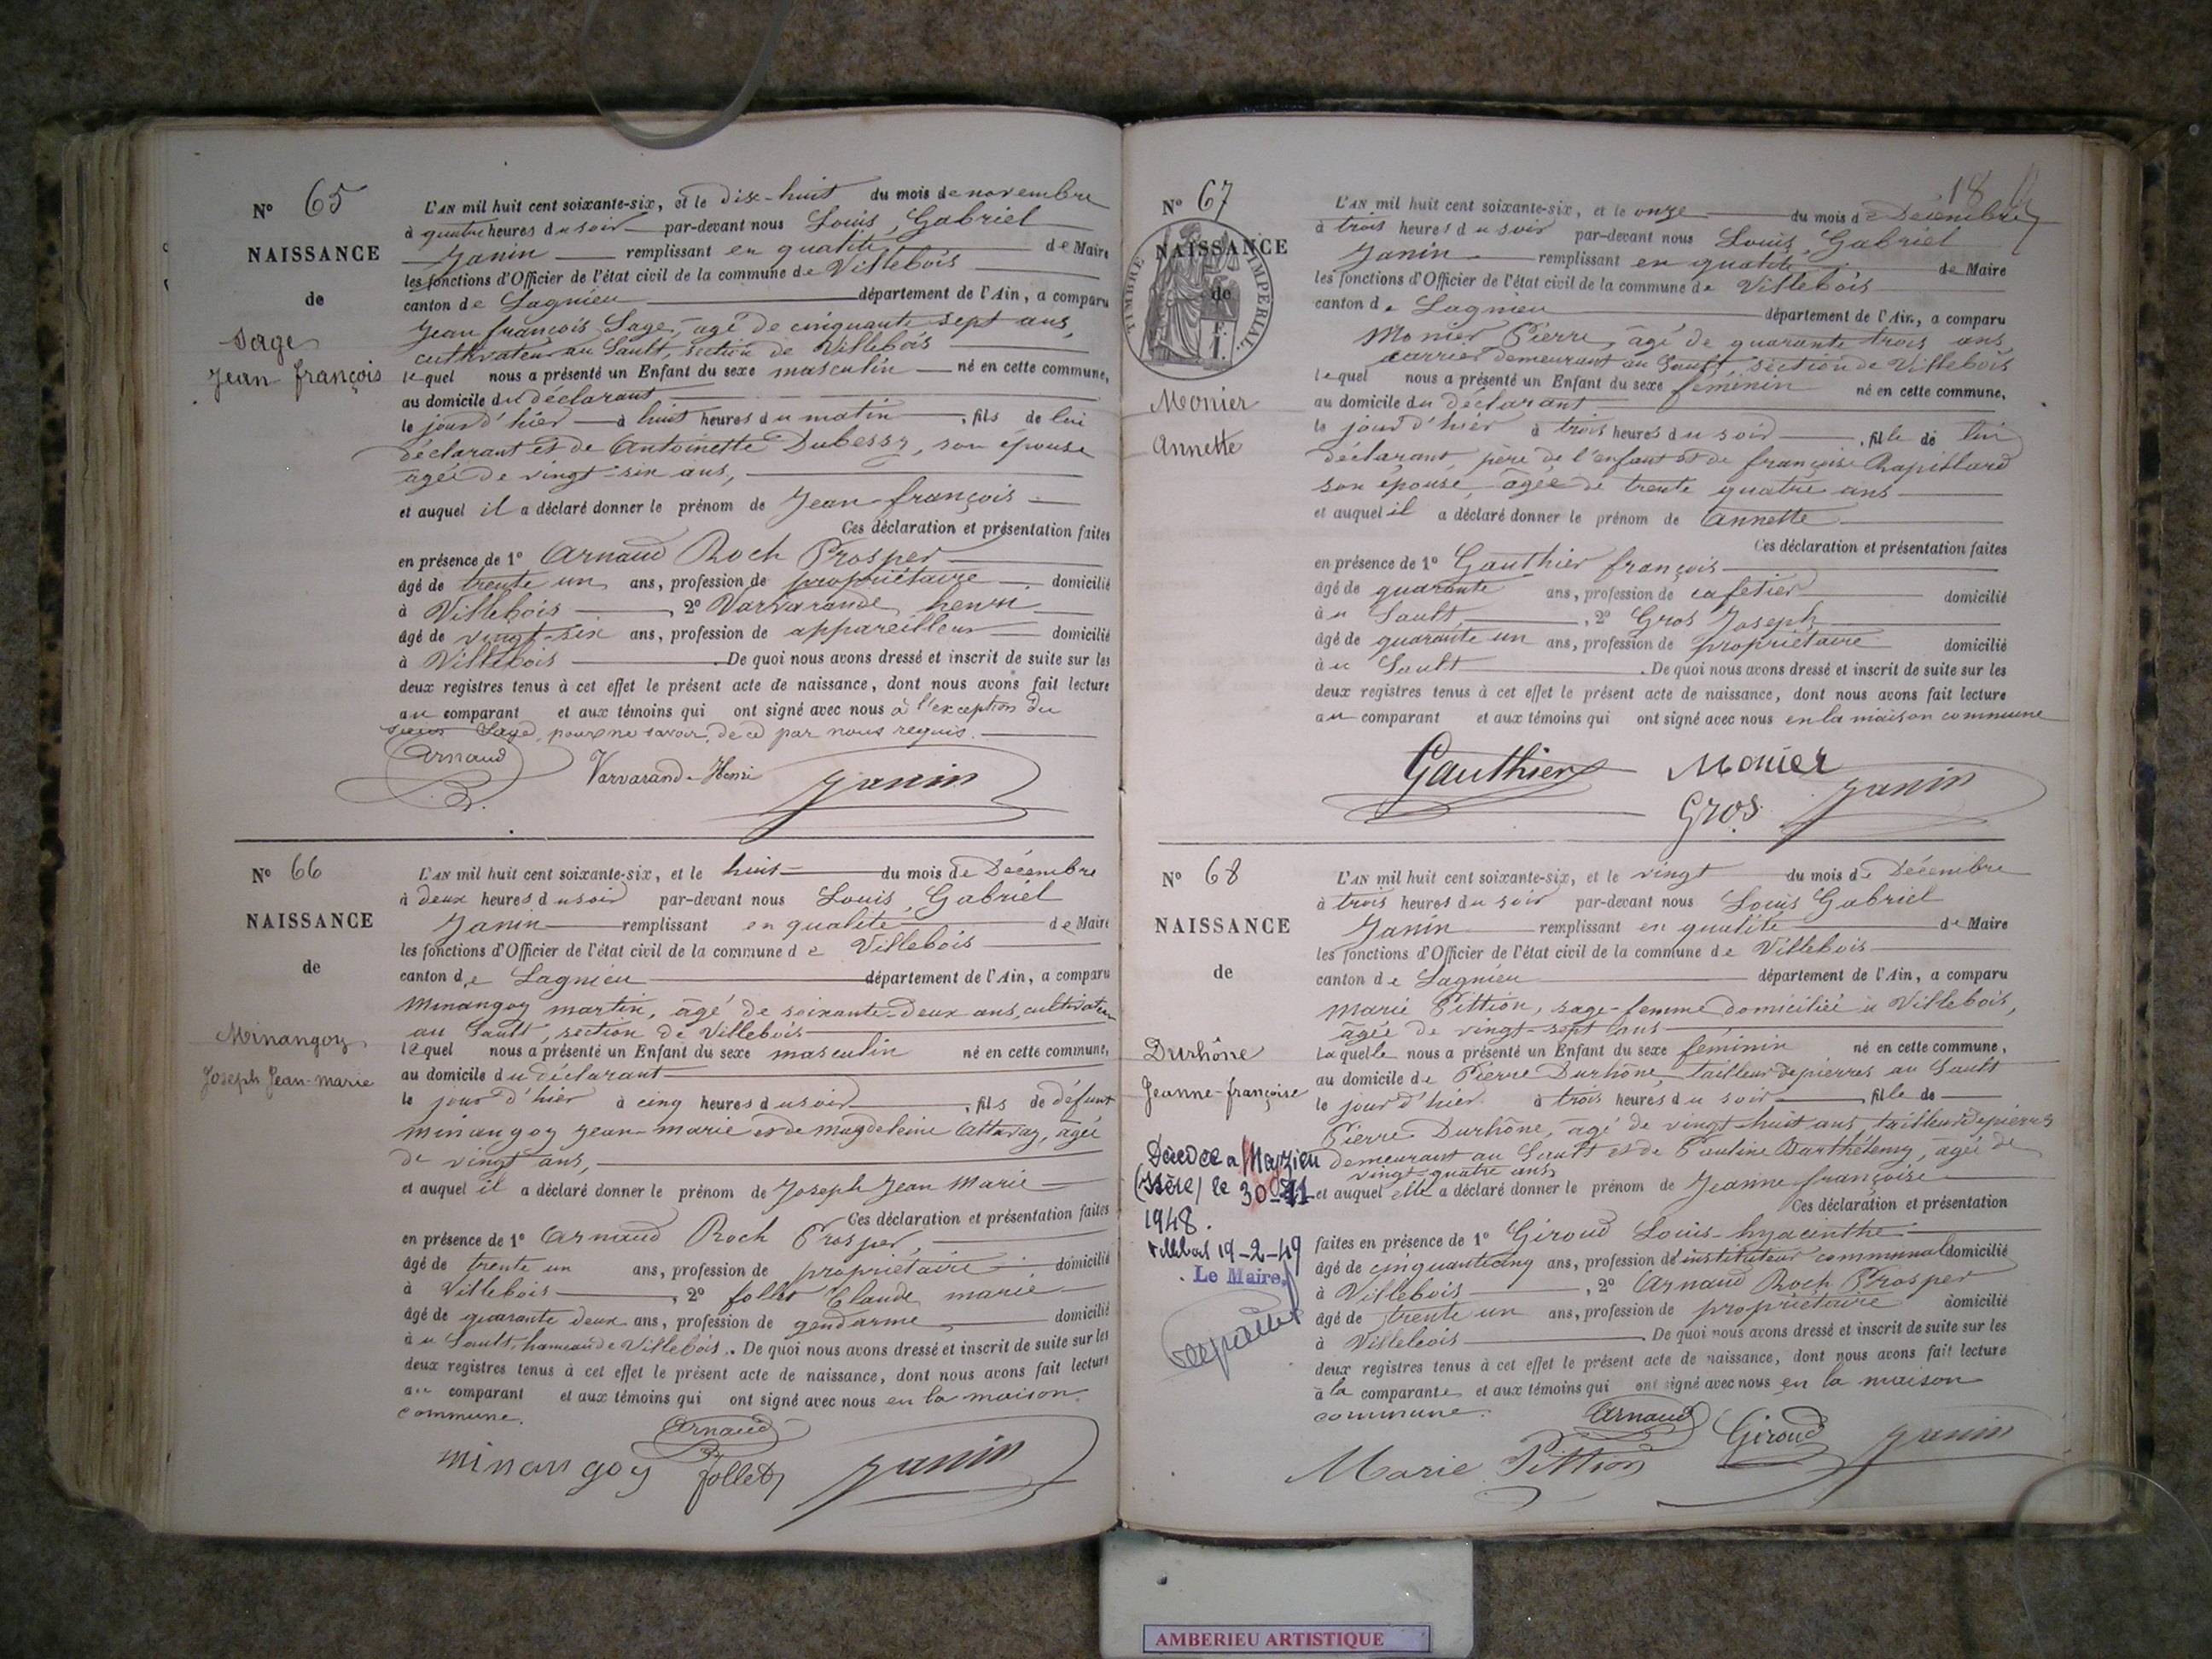 N° 65
NAISSANCE
de
Sage
Jean françois
L'AN mil huit cent soixante-six, et le dix-huit du mois de novembre
à quatre heures du soir par-devant nous Louis, Gabriel
Janin remplissant en qualité de Maire
les fonctions d'Officier de l'état civil de la commune de Villebois
canton de Lagnieu département de l'Ain, a comparu
Jean françois Sage, âgé de cinquante sept ans,
cultivateur au Sault, section de Villebois
lequel nous a présenté un Enfant du sexe masculin né en cette commune,
au domicile du déclarant
le jour d'hier à huit heures du matin, fils de lui
déclarant et de Antoinette Dubessy, son épouse
âgée de vingt-six ans,
et auquel il a déclaré donner le prénom de Jean-françois
Ces déclaration et présentation faites
en présence de 1° Arnaud Roch Prosper
âgé de trente un ans, profession de propriétaire domicilié
à Villebois, 2° Varvarande henri
âgé de vingt-six ans, profession de appareilleur domicilié
à Villebois. De quoi nous avons dressé et inscrit de suite sur les
deux registres tenus à cet effet le présent acte de naissance, dont nous avons fait lecture
au comparant et aux témoins qui ont signé avec nous à l'exception du
sieur Sage, pour ne savoir, de ce par nous requis.
Arnaud Varvarande Henri Janin
N° 66
NAISSANCE
de
Minangoy
Joseph Jean-marie
L'AN mil huit cent soixante-six, et le huit du mois de Décembre
à deux heures du soir par-devant nous Louis, Gabriel
Janin remplissant en qualité de Maire
les fonctions d'Officier de l'état civil de la commune de Villebois
canton de Lagnieu département de l'Ain, a comparu
Minangoy martin, âgé de soixante-deux ans, cultivateur
au Sault, section de Villebois
lequel nous a présenté un Enfant du sexe masculin né en cette commune,
au domicile du déclarant
le jour d'hier à cinq heures du soir, fils de défunt
minangoy jean-marie et de magdeleine Attavay, âgée
de vingt ans,
et auquel il a déclaré donner le prénom de Joseph Jean Marie
Ces déclaration et présentation faites
en présence de 1° Arnaud Roch Prosper,
âgé de trente un ans, profession de propriétaire domicilié
à Villebois, 2° follet Claude marie
âgé de quarante deux ans, profession de gendarme domicilié
au Sault, hameau de Villebois. De quoi nous avons dressé et inscrit de suite sur les
deux registres tenus à cet effet le présent acte de naissance, dont nous avons fait lecture
au comparant et aux témoins qui ont signé avec nous en la maison
commune.
Arnaud
minangoy follet Janin
18
N° 67
NAISSANCE
de
TIMBRE IMPERIAL
Monier
Annette
L'AN mil huit cent soixante-six, et le onze du mois de Décembre
à trois heures du soir par-devant nous Louis, Gabriel
Janin remplissant en qualité de Maire
les fonctions d'Officier de l'état civil de la commune de Villebois
canton de Lagnieu département de l'Ain, a comparu
Monier Pierre, âgé de quarante trois ans,
carrier demeurant au Sault, section de Villebois
lequel nous a présenté un Enfant du sexe féminin né en cette commune,
au domicile du déclarant
le jour d'hier à trois heures du soir, fille de lui
déclarant, père de l'enfant et de françoise Chapillard
son épouse, âgée de trente quatre ans
et auquel il a déclaré donner le prénom de Annette
Ces déclaration et présentation faites
en présence de 1° Gauthier françois
âgé de quarante ans, profession de cafetier domicilié
au Sault, 2° Gros Joseph
âgé de quarante un ans, profession de propriétaire domicilié
au Sault. De quoi nous avons dressé et inscrit de suite sur les
deux registres tenus à cet effet le présent acte de naissance, dont nous avons fait lecture
au comparant et aux témoins qui ont signé avec nous en la maison commune
Gauthier Monier
Gros Janin
N° 68
NAISSANCE
de
Durhône
Jeanne-françoise
Décédée à Meyzieu
(Isère) le 30-11
1948.
Villebois 19-2-49
Le Maire,
L'AN mil huit cent soixante-six, et le vingt du mois de Décembre
à trois heures du soir par-devant nous Louis Gabriel
Janin remplissant en qualité de Maire
les fonctions d'Officier de l'état civil de la commune de Villebois
canton de Lagnieu département de l'Ain, a comparu
Marie Pittion, sage-femme domiciliée à Villebois,
âgée de vingt-sept ans
laquelle nous a présenté un Enfant du sexe féminin né en cette commune,
au domicile de Pierre Durhône, tailleur de pierres au Sault
le jour d'hier à trois heures du soir, fille de
Pierre Durhône, âgé de vingt huit ans, tailleur de pierres
demeurant au Sault et de Pauline Barthélemy, âgée de
vingt-quatre ans
et auquel elle a déclaré donner le prénom de Jeanne françoise
Ces déclaration et présentation
faites en présence de 1° Giroud Louis-hyacinthe
âgé de cinquante cinq ans, profession de instituteur communal domicilié
à Villebois, 2° Arnaud Roch Prosper
âgé de trente un ans, profession de propriétaire domicilié
à Villebois. De quoi nous avons dressé et inscrit de suite sur les
deux registres tenus à cet effet le présent acte de naissance, dont nous avons fait lecture
à la comparante et aux témoins qui ont signé avec nous en la maison
commune.
Arnaud Giroud Janin
Marie Pittion
AMBERIEU ARTISTIQUE